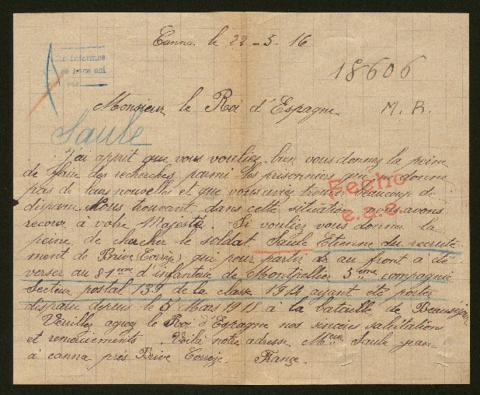 Canna le 22-5-16
18606
Monsieur le Roi d'Espagne
M. R.
Saule
J'ai apprit que vous vouliez bien vous donner la peine
de faire des recherches parmi les prisonniers qui ne donne
pas de leurs nouvelles et que vous avez trouvé beaucoup de
disparu. Nous trouvant dans cette situation nous avons
recour à votre Majesté. Si vouliez vous donner la
peine de chercher le soldat Saule Etienne du recrute-
ment de Brive (Corrèze) qui pour partir au front a été
verser au 81eme d'infanterie de Montpellier 5eme compagnie
secteur postal 139 de la classe 1914 ayant été porter
disparu depuis le 5 Mars 1915 à la bataille de Beauséjour
Veuillez agréez le Roi d'Espagne nos sincères salutations
et remerciements. Voilà notre adresse Mr Saule jean
à canna près Brive Corrèze France.
Fecho